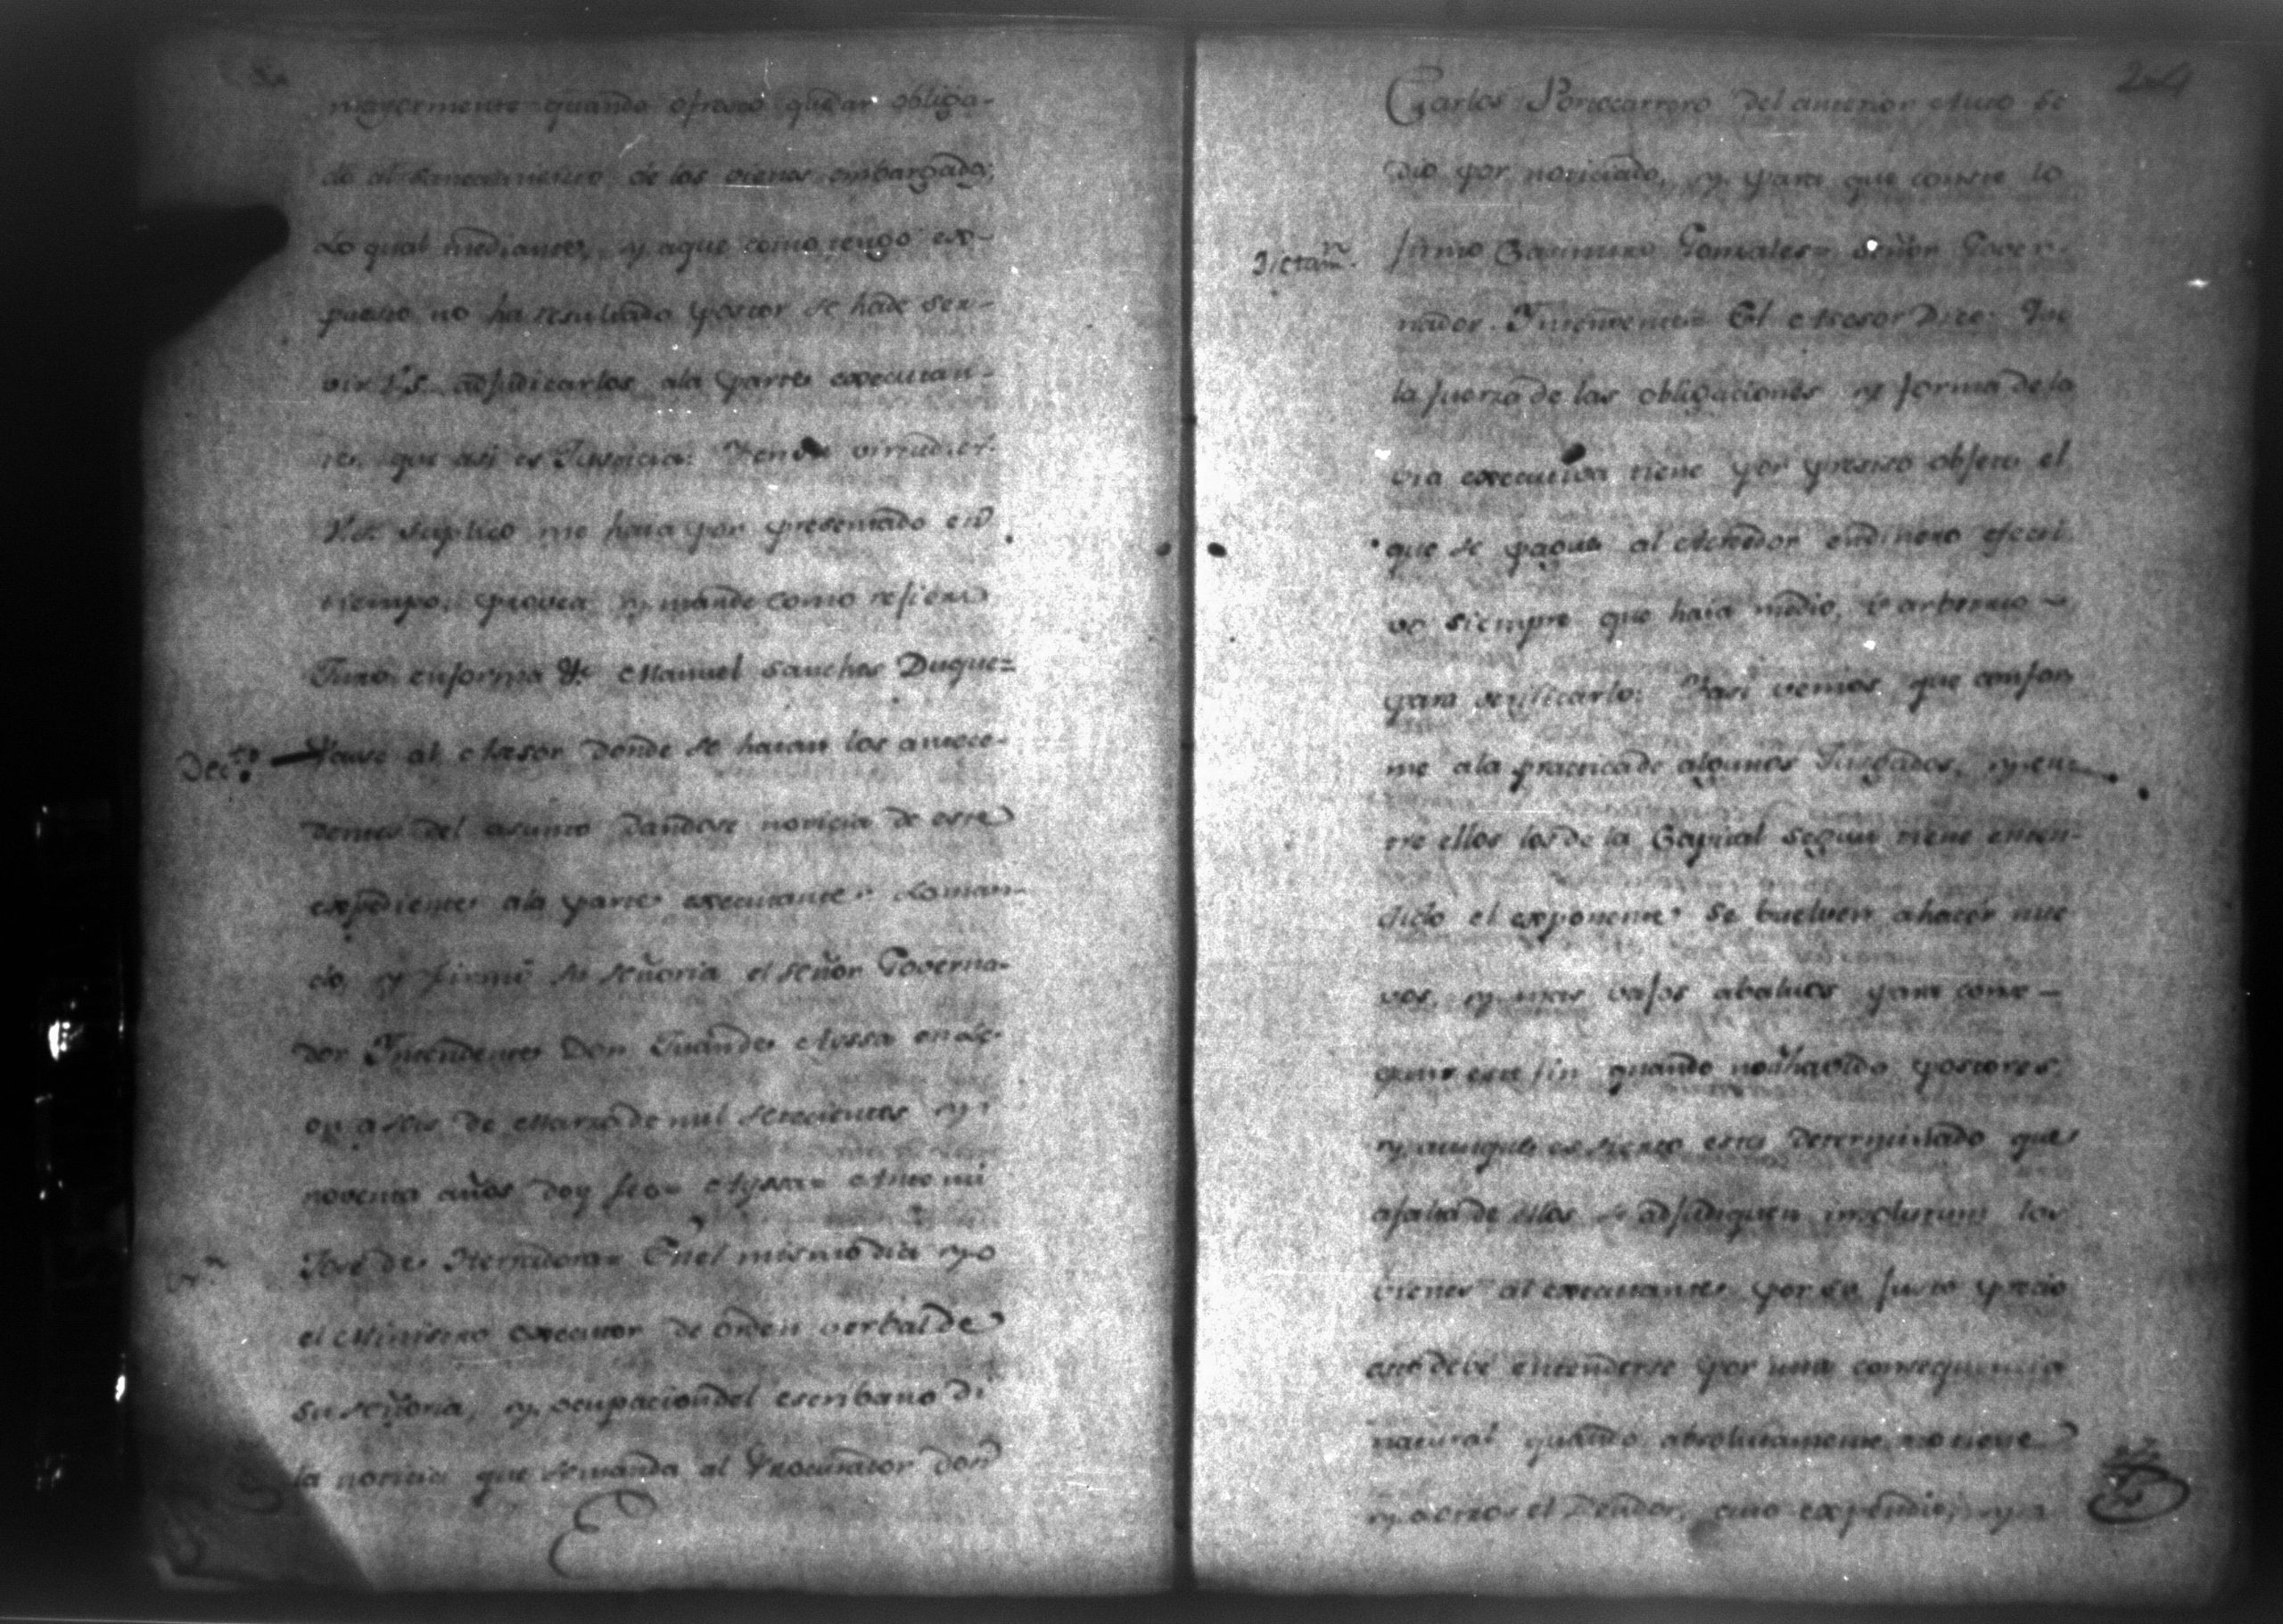 mayormente quando ofresco quedar obliga-
do al saneamiento de los vienes embargados;
Lo qual mediante, y aque como tengo ex-
puesto no ha resultado postor se hade ser-
vir VS. adjudicarlos ala parte executan-
te, que asi es Justicia: En virtud
suplico me haia por presentado en
tiempo, provea y mande como refiero
Juro enforma &c Manuel Sanches Duque=
Dec.to Pase al Asesor donde se hallan los antece-
dentes del asunto dandose noticia de este
expediente ala parte executante. Loman-
do, y firmó su señoria el señor Governa-
dor Intendente Don Juan de Aussa en
a seis de Marzo de mil setecientos y
noventa años doy fee= Ayssa= Ante mi
José de Herradora= En el mismo dia yo
el Ministro executor de orden verbal de
su señoria, y ocupacion del escribano di
la noticia que semanda al Procurador don
204
Carlos Portocarrero del anterior Auto se
dio por noticiado, y para que conste lo
Dictam.n firmo Casimiro Gonzales= Señor Gover-
nador Intendente= El Asesor Dice: Que
la fuerza de las obligaciones y forma de la
via executiva tiene por preciso objeto el
que se pague al Acrehedor endinero efecti
vo siempre que haia medio, ó arbitrio
para verificarlo: Yasi vemos que confor
me ala practica de algunos Juzgados, y en-
tre ellos los de la Capital segun tiene enten-
dido el exponente se buelven ahacer nue
vos, y mas bajos abaluos para conse-
guir este fin quando no ha havido postores,
y aunque es sierto está determinado que
afalta de ellos se adjudiquen insolutum los
vienes al executante por su justo precio
esto debe entenderse por una consequencia
natural quando absolutamente no tiene
otros el Deudor, cuio expendio, y